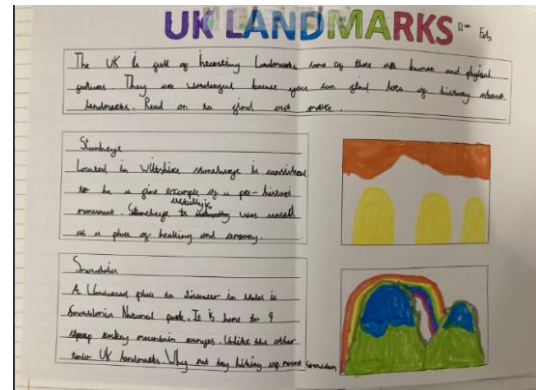 UK LANDMARKS 12th Feb
The UK is full of interesting Landmarks some of these are human and physical
features. They are wonderful because you can find lots of history about
landmarks. Read on to find out more.
Stonhege
Located in Wiltshire stonehenge is considered
to be a fine example of a pre-historic
usually
monument. Stonehenge was
as a place of healing and
Snowdonia
A place to discover in Wales is
Snowdonia National park. It is home to 9
steep rocky mountain ranges. Unlike the other
UK landmarks. Why not try hiking up mount snowdon